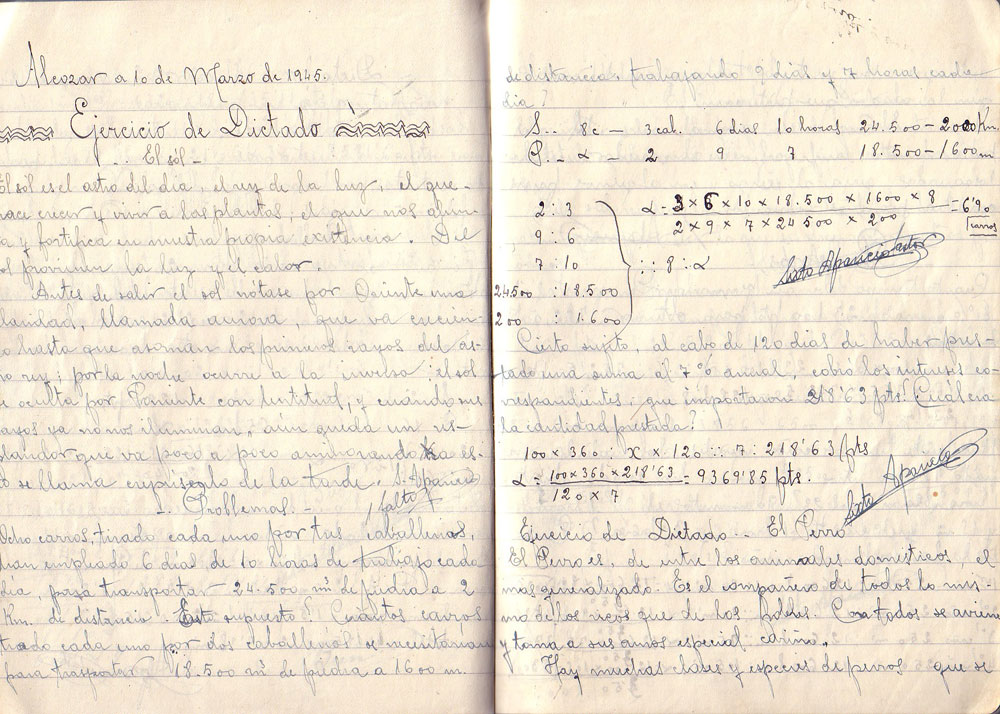 Alcozar a 10 de Marzo de 1945.
Ejercicio de Dictado
El sól
El sól es el astro del dia, el rey de la luz, el que
hace crecer y vivir a las plantas, el que nos anima
a y fortifica en nuestra propia existencia. Del
sol provienen la luz y el calor.
Antes de salir el sol nótase por Oriente una
laridad, llamada aurora, que va crecien-
o hasta que asoman los primeros rayos del as-
ro rey; por la noche ocurre a la inversa: el sol
e oculta por Poniente con lentitud, y cuando sus
rayos ya no nos iluminan, aún queda un res-
landor que va poco a poco aminorando
se llama crepúsculo de la tarde. S. Aparicio
1 falta
Problemas.
Ocho carros, tirado cada uno por tres caballerias,
han empleado 6 dias de 10 horas de trabajo cada
dia, para transportar 24.500 m³ de piedra a 2
Km. de distancia. Esto supuesto ¿Cuántos carros
tirado cada uno por dos caballerias se necesitarian
para trasportar 18.500 m³ de piedra a 1600 m.
de distancia, trabajando 9 dias y 7 horas cada
dia?
S.. 8c – 3cab. 6 dias 10 horas 24.500 – 2000 Km.
P.. α – 2 9 7 18.500 – 1600 m
2 : 3
9 : 6
7 : 10
24.500 : 18.500
200 : 1.600
: : 8 : α
α = 3 × 6 × 10 × 18.500 × 1600 × 8 = 6'90
2 × 9 × 7 × 24.500 × 200
carros
Sixto Aparicio
Cierto sujeto, al cabo de 120 dias de haber pres-
tado una suma al 7% anual, cobró los intereses co-
rrespondientes, que importaron 218'63 pts. ¿Cuál era
la cantidad prestada?
100 × 360 : X × 120 :: 7 : 218'63 pts
α = 100 × 360 × 218'63 = 9369'85 pts.
120 × 7
Sixto Aparicio
Ejercicio de Dictado.. El Perro
El Perro es, de entre los animales domésticos, el
mas generalizado. Es el compañero de todos lo mis-
mo de los ricos que de los pobres. Con todos se aviene
y toma a sus amos especial cariño.
Hay muchas clases y especies de perros que se